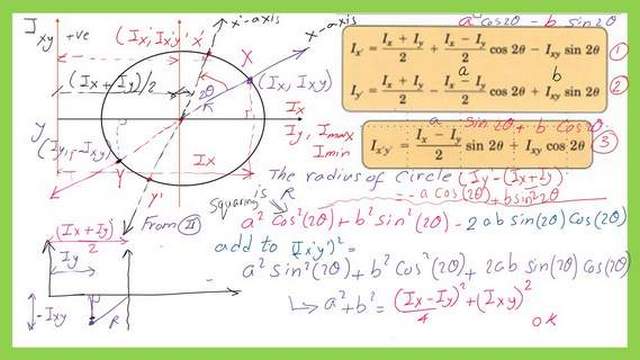 I_xy +ve
x'-axis
x-axis
(Ix', Ix'y' x'
X
(Ix, Ixy)
(Ix + Iy)/2
2θ
R
Ix
Iy, Imax
Imin
y
(Iy, -Ixy)
Y
y'
Ix
From II
(Ix+Iy)
2
Iy
-Ixy
R
a cos2θ - b sin2θ
I_x' = (I_x + I_y)/2 + (I_x - I_y)/2 cos 2θ - I_xy sin 2θ 1
a b
I_y' = (I_x + I_y)/2 - (I_x - I_y)/2 cos 2θ + I_xy sin 2θ 2
a sin 2θ + b Cos2θ
I_x'y' = (I_x - I_y)/2 sin 2θ + I_xy cos 2θ 3
The radius of Circle (Iy'-(Ix+Iy)
is R = -a Cos(2θ)+b sin 2θ
squaring
a² Cos²(2θ)+b² sin²(2θ) - 2ab sin(2θ) Cos(2θ)
add to (Ix'y')² =
a² sin²(2θ)+b² Cos²(2θ)+ 2ab sin(2θ) Cos(2θ)
↳ a²+b² = (Ix-Iy)²/4 + (Ixy)²
OK